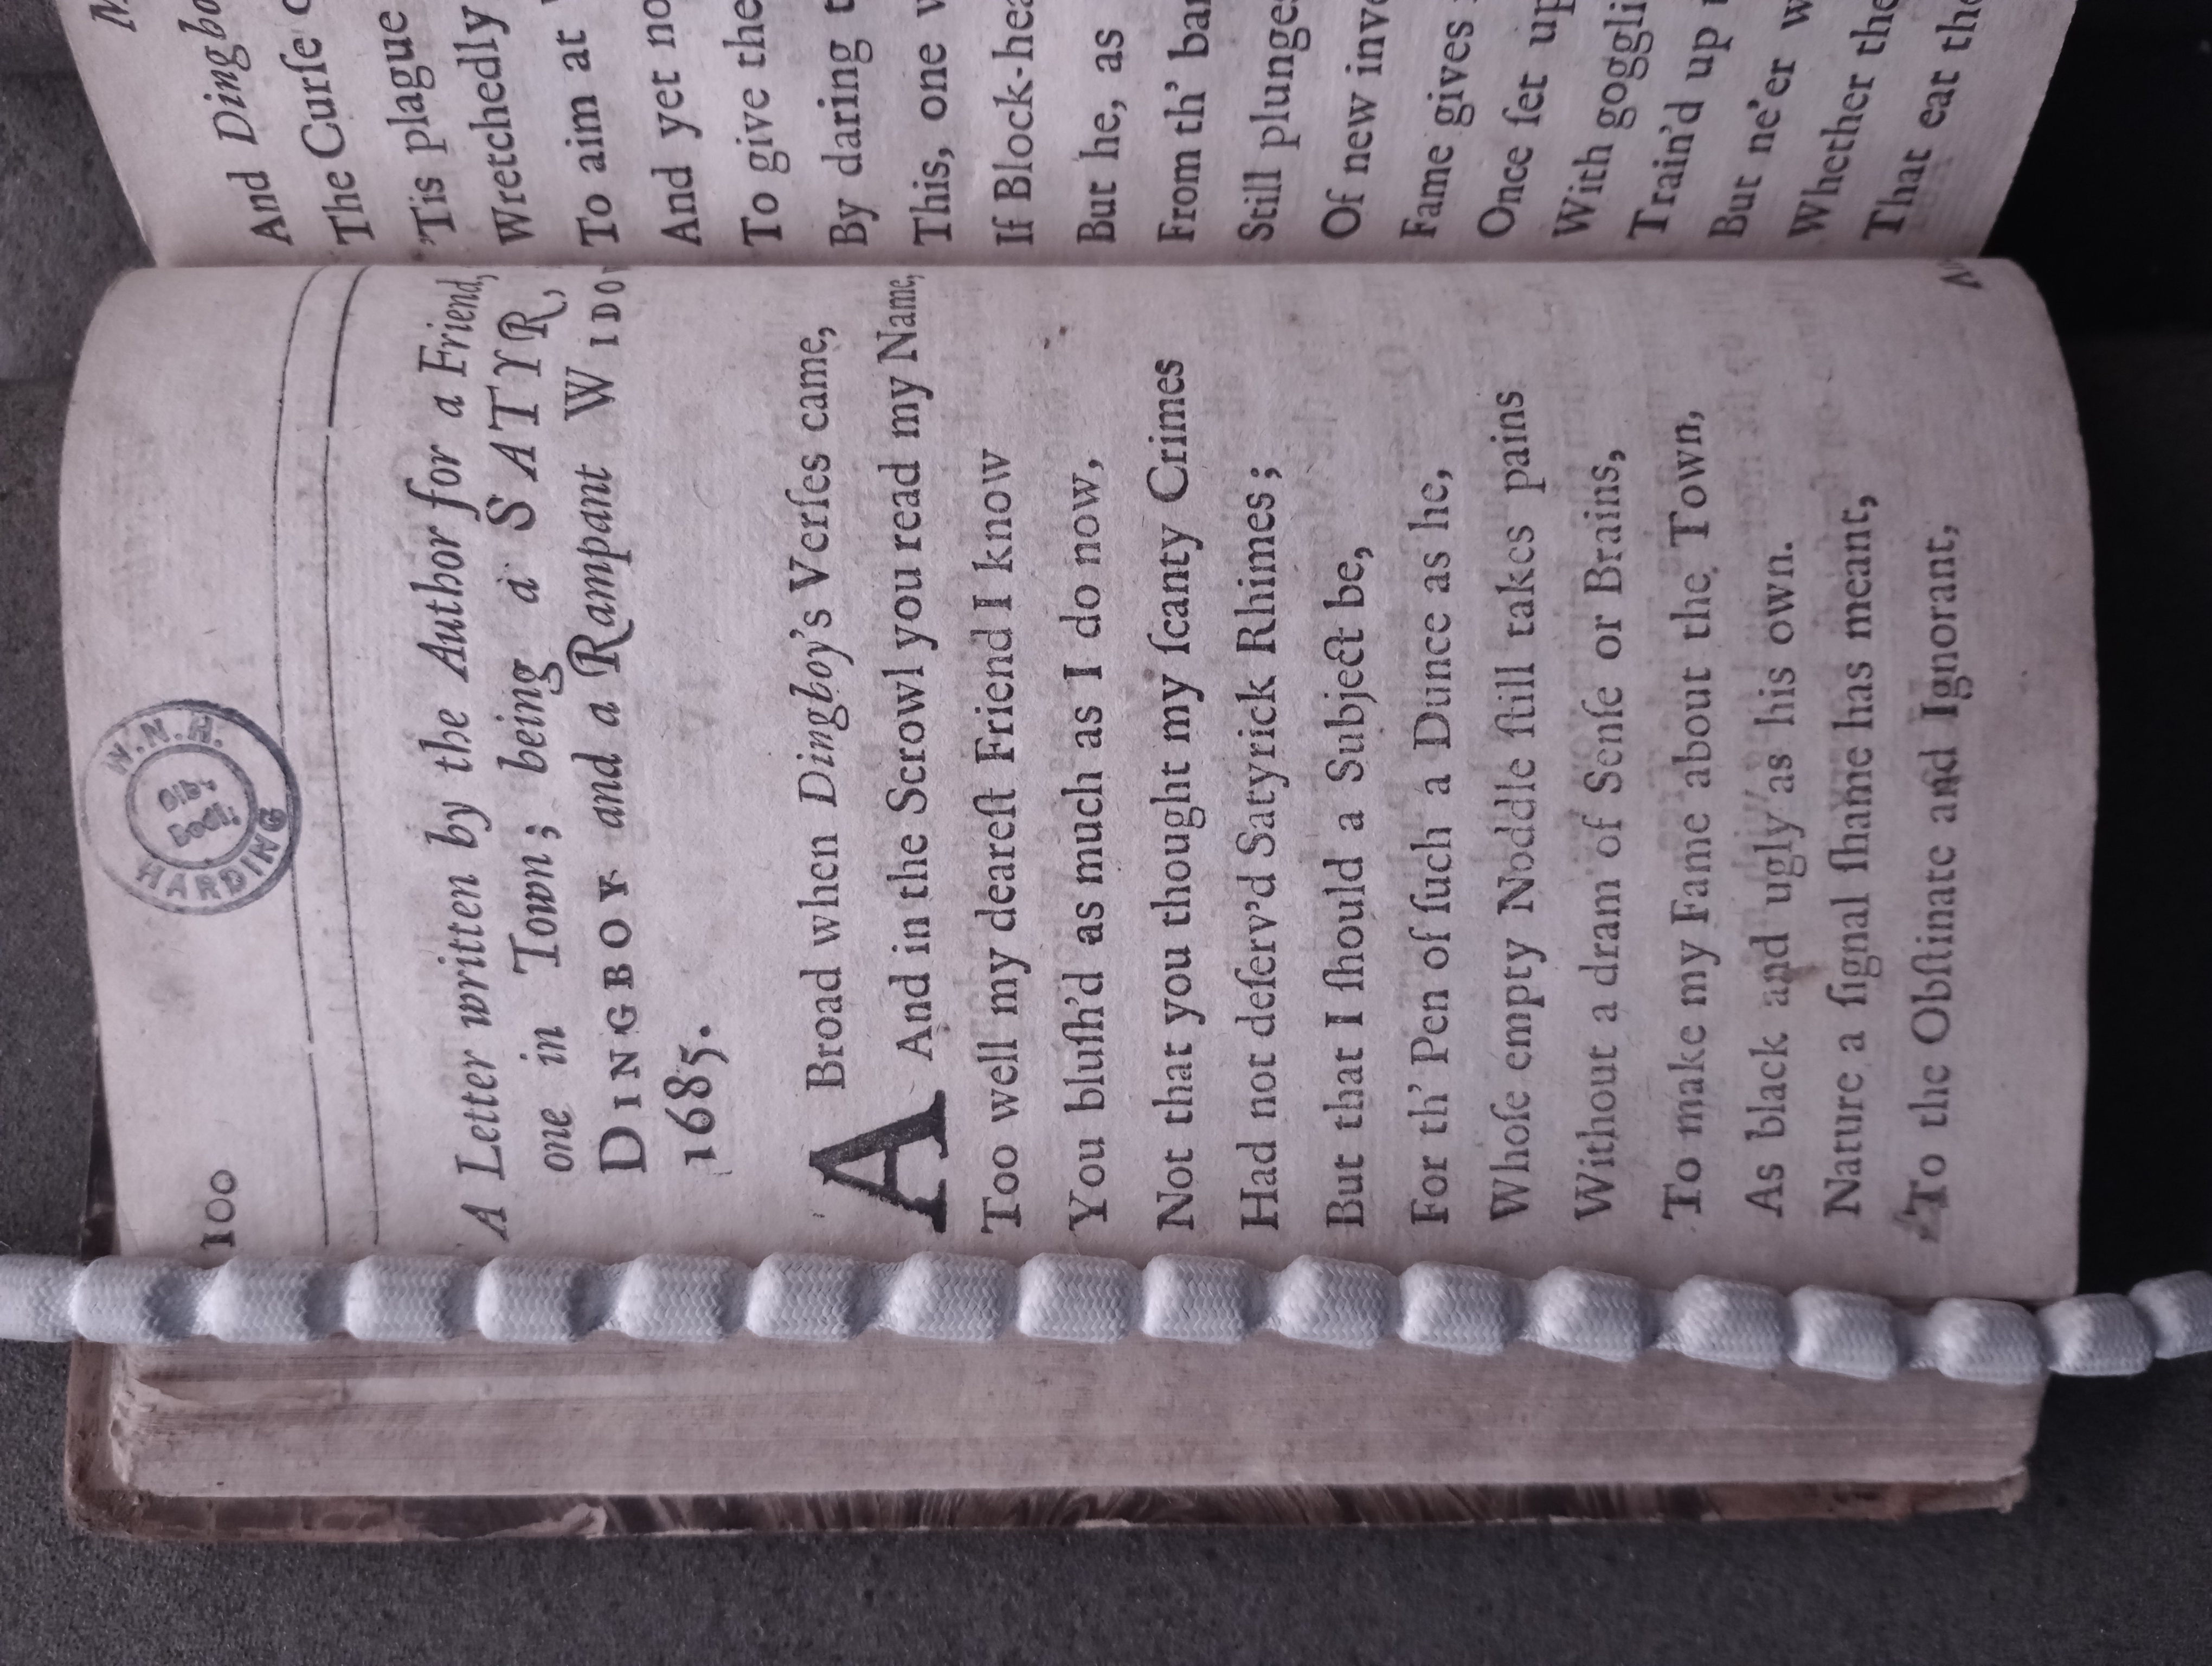 100
W.N.H.
HARDING
Bib:
Bodl:
A Letter written by the Author for a Friend,
one in Town; being a SATYR,
DINGBOY and a Rampant
1685.
ABroad when Dingboy's Verſes came,
And in the Scrowl you read my Name,
Too well my deareſt Friend I know
You bluſh'd as much as I do now,
Not that you thought my ſcanty Crimes
Had not deſerv'd Satyrick Rhimes;
But that I ſhould a Subject be,
For th' Pen of ſuch a Dunce as he,
Whoſe empty Noddle ſtill takes pains
Without a dram of Senſe or Brains,
To make my Fame about the Town,
As black and ugly as his own.
Nature a ſignal ſhame has meant,
To the Obſtinate and Ignorant,
And
The Curſe
'Tis plague
Wretchedly
To aim at
And yet
To give the
By daring
This, one
If
But he, as
From th'
Still
Of new
Fame gives
Once ſet up
With
Train'd up
But ne'er
Whether
That eat